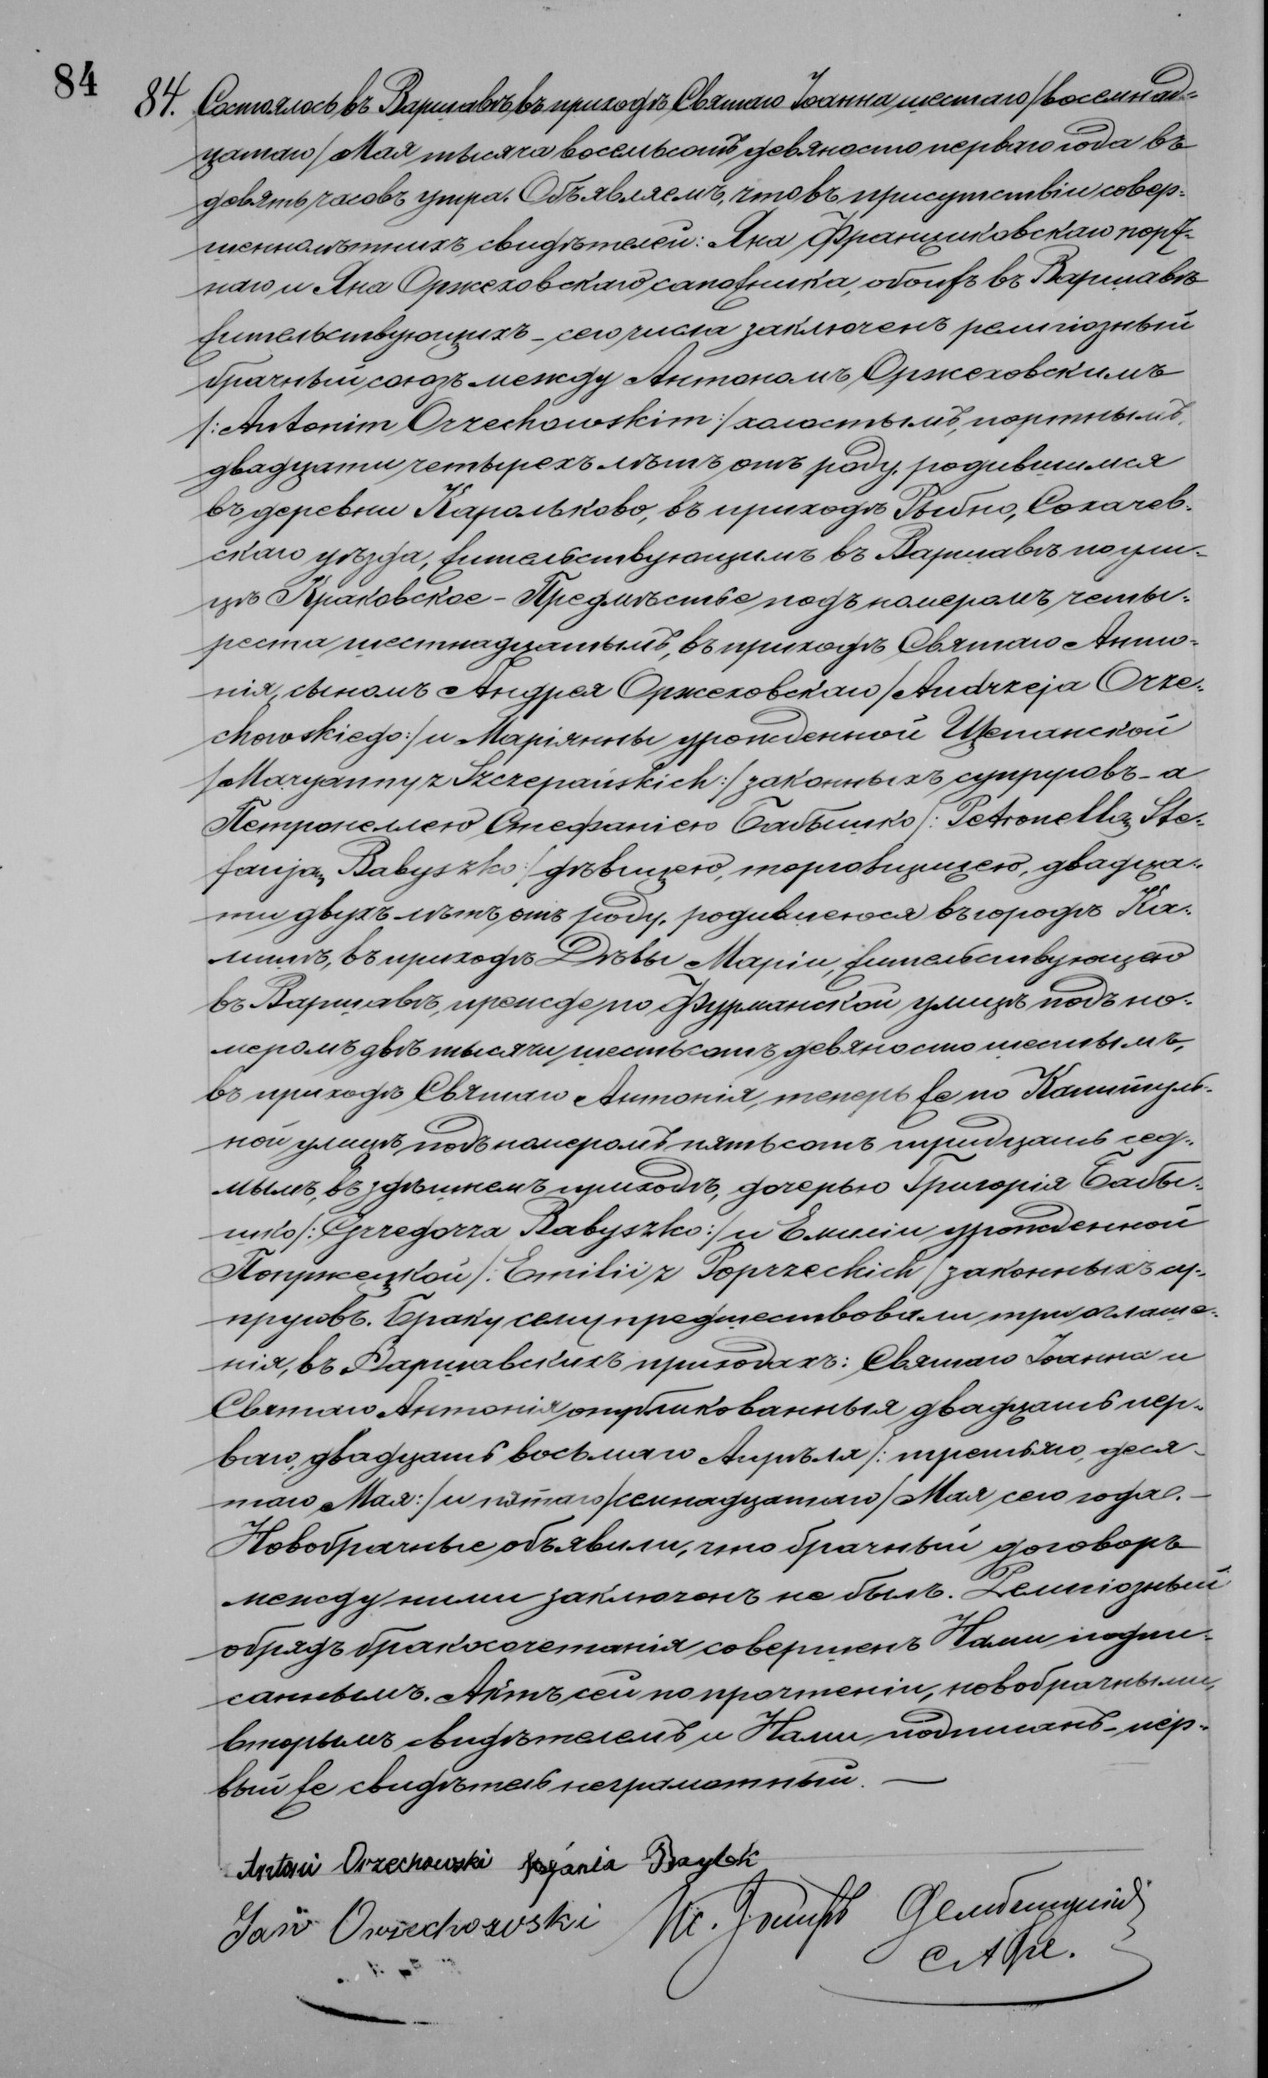 84
84. Состоялось въ Варшавѣ въ приходѣ Святаго Іоанна шестаго /восемнад-
цатаго/ Мая тысяча восемьсотъ девяносто перваго года въ
девять часовъ утра. Объявляемъ, что въ присутствіи совер-
шеннолѣтнихъ свидѣтелей: Яна Францишковскаго порт-
наго и Яна Оржеховскаго сапожника, обоихъ въ Варшавѣ
жительствующихъ – сего числа заключенъ религіозный
брачный союзъ между Антономъ Оржеховскимъ
/: Antonim Orzechowskim :/ холостымъ, портнымъ,
двадцати четырехъ лѣтъ отъ роду, родившимся
въ деревни Карольково, въ приходѣ Рыбно, Сохачев-
скаго уѣзда, жительствующимъ въ Варшавѣ по ули-
цѣ Краковское-Предмѣстье подъ номеромъ четы-
реста шестнадцатымъ, въ приходѣ Святаго Анто-
нія, сыномъ Андрея Оржеховскаго /Andrzeja Orze-
chowskiego:/ и Маріянны урожденной Щепанской
/Maryanny z Szczepańskich:/ законныхъ супруговъ – а
Петронеллею Стефаніею Бабышко /: Petronellą Ste-
fanją Babyszko :/ дѣвицею, торговицицею, двадца-
ти двухъ лѣтъ отъ роду, родившеюся въ городѣ Ка-
лишѣ, въ приходѣ Дѣвы Маріи, жительствующею
въ Варшавѣ, прежде по Фурманской улицѣ подъ но-
меромъ двѣ тысячи шестьсотъ девяносто шестымъ,
въ приходѣ Святаго Антонія, теперь же по Капитуль-
ной улицѣ подъ номеромъ пятьсотъ тридцать сед-
мымъ, въ здѣшнемъ приходѣ, дочерью Григорія Бабы-
шко /: Grzegorza Babyszko :/ и Емиліи урожденной
Попржецкой /: Emilii z Poprzeckich / законныхъ су-
пруговъ. Браку сему предшествовали три оглаше-
нія, въ Варшавскихъ приходахъ: Святаго Іоанна и
Святаго Антонія опубликованныя двадцать пер-
ваго, двадцать восьмаго Апрѣля /: третьяго, деся-
таго Мая:/ и пятаго /семнадцатаго/ Мая сего года. –
Новобрачные объявили, что брачный договоръ
между ними заключенъ не былъ. Религіозный
обрядъ бракосочетанія совершенъ Нами подпи-
саннымъ. Актъ сей по прочтеніи, новобрачными,
вторымъ свидѣтелемъ и Нами подписанъ – пер-
вый же свидѣтель неграмотный. —
Antoni Orzechowski
Jan Orzechowski